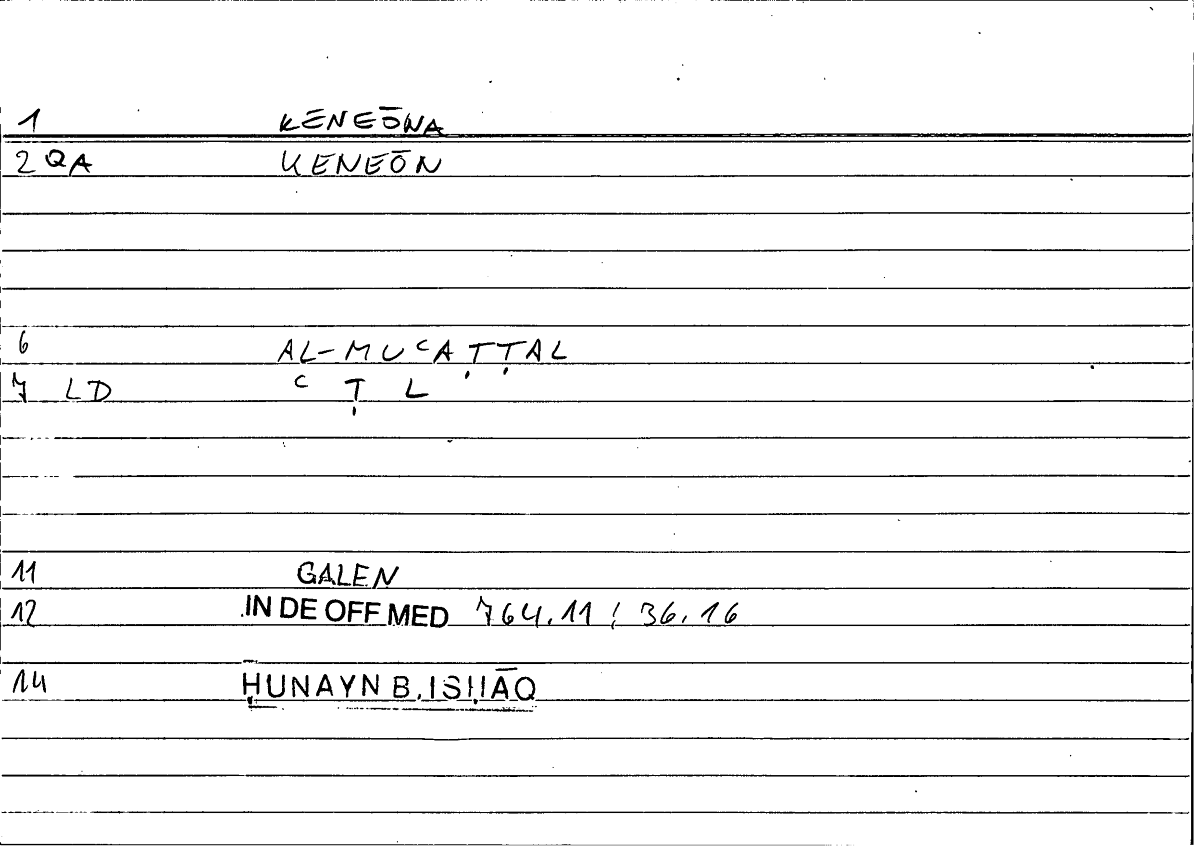 1 KENEŌNA
2 QA KENEŌN
6 AL-MUCAṬṬAL
7 LD C Ṭ L
11 GALEN
12 IN DE OFF MED 764.11 / 36.16
14 ḤUNAYN B. ISḤĀQ